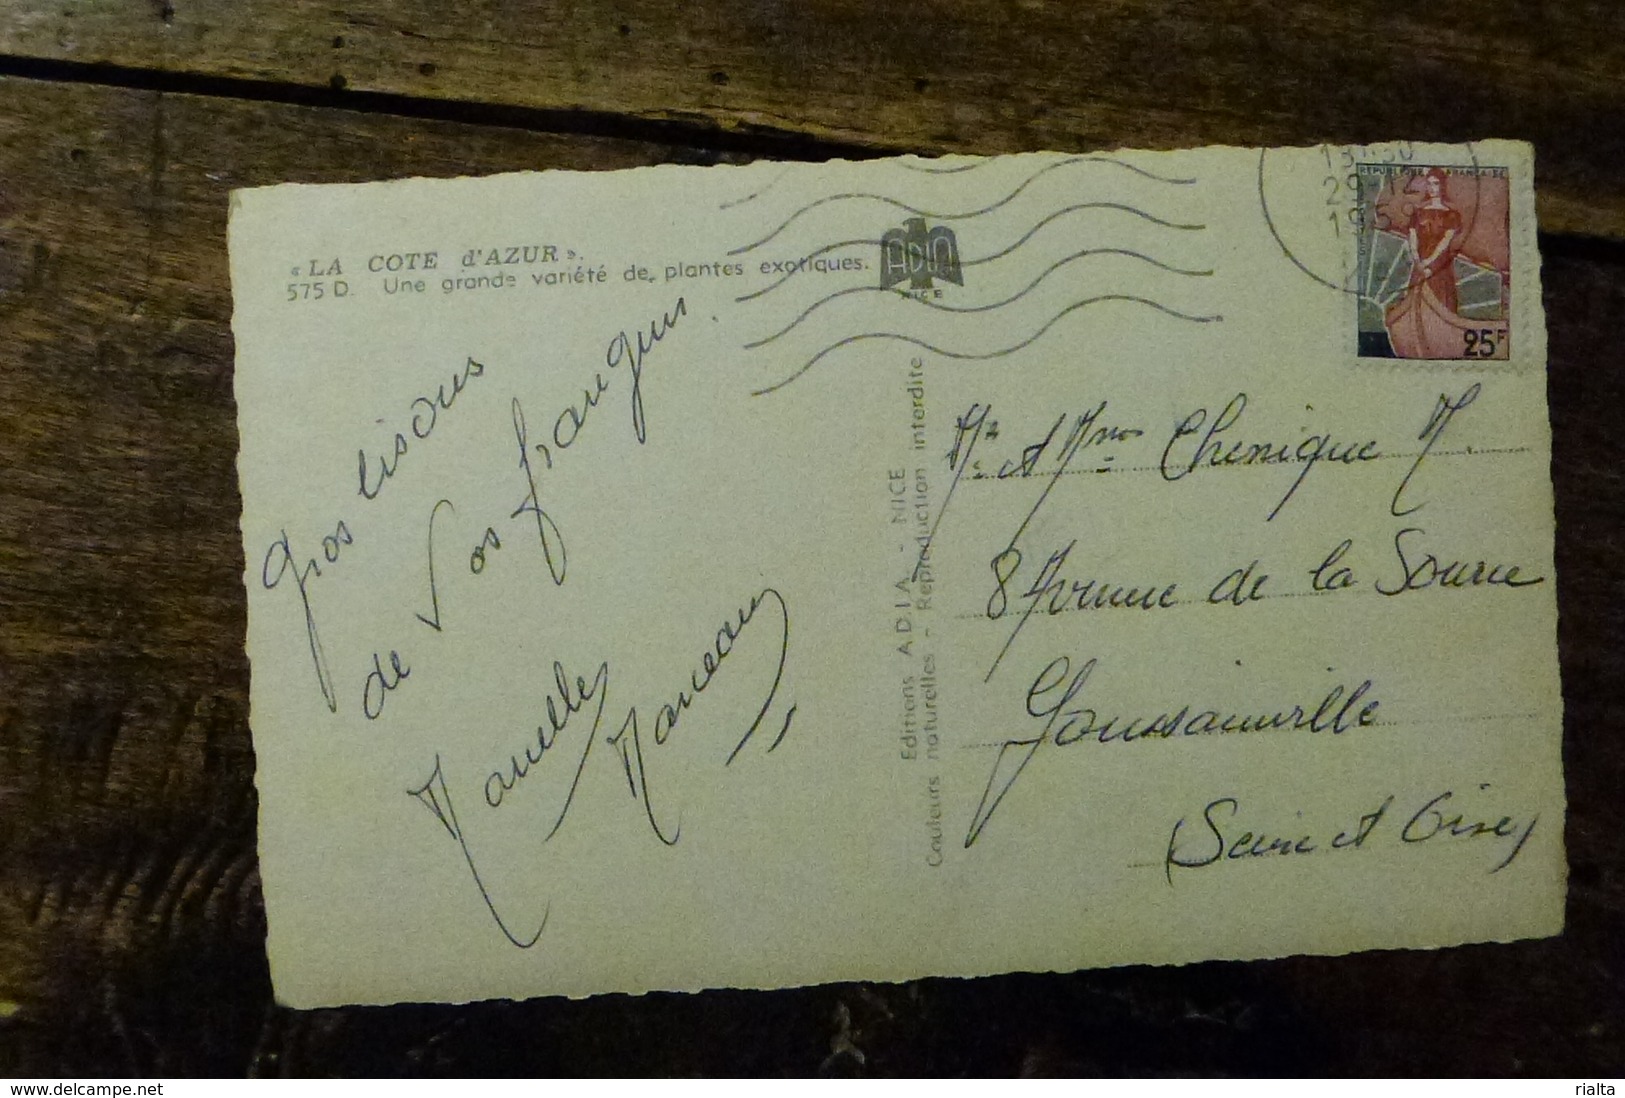 « LA COTE d'AZUR ».
575 D. Une grande variété de plantes exotiques.
ADIA
NICE
Gros bisous
de Vos frangins.
Marcelle
Marceau
Editions ADIA - NICE
Couleurs naturelles - Reproduction interdite
29-12
1959
REPUBLIQUE FRANÇAISE
25F
Mr et Mme Chenique M.
8 Avenue de la Source
Goussainville
(Seine et Oise)
www.delcampe.net
rialta